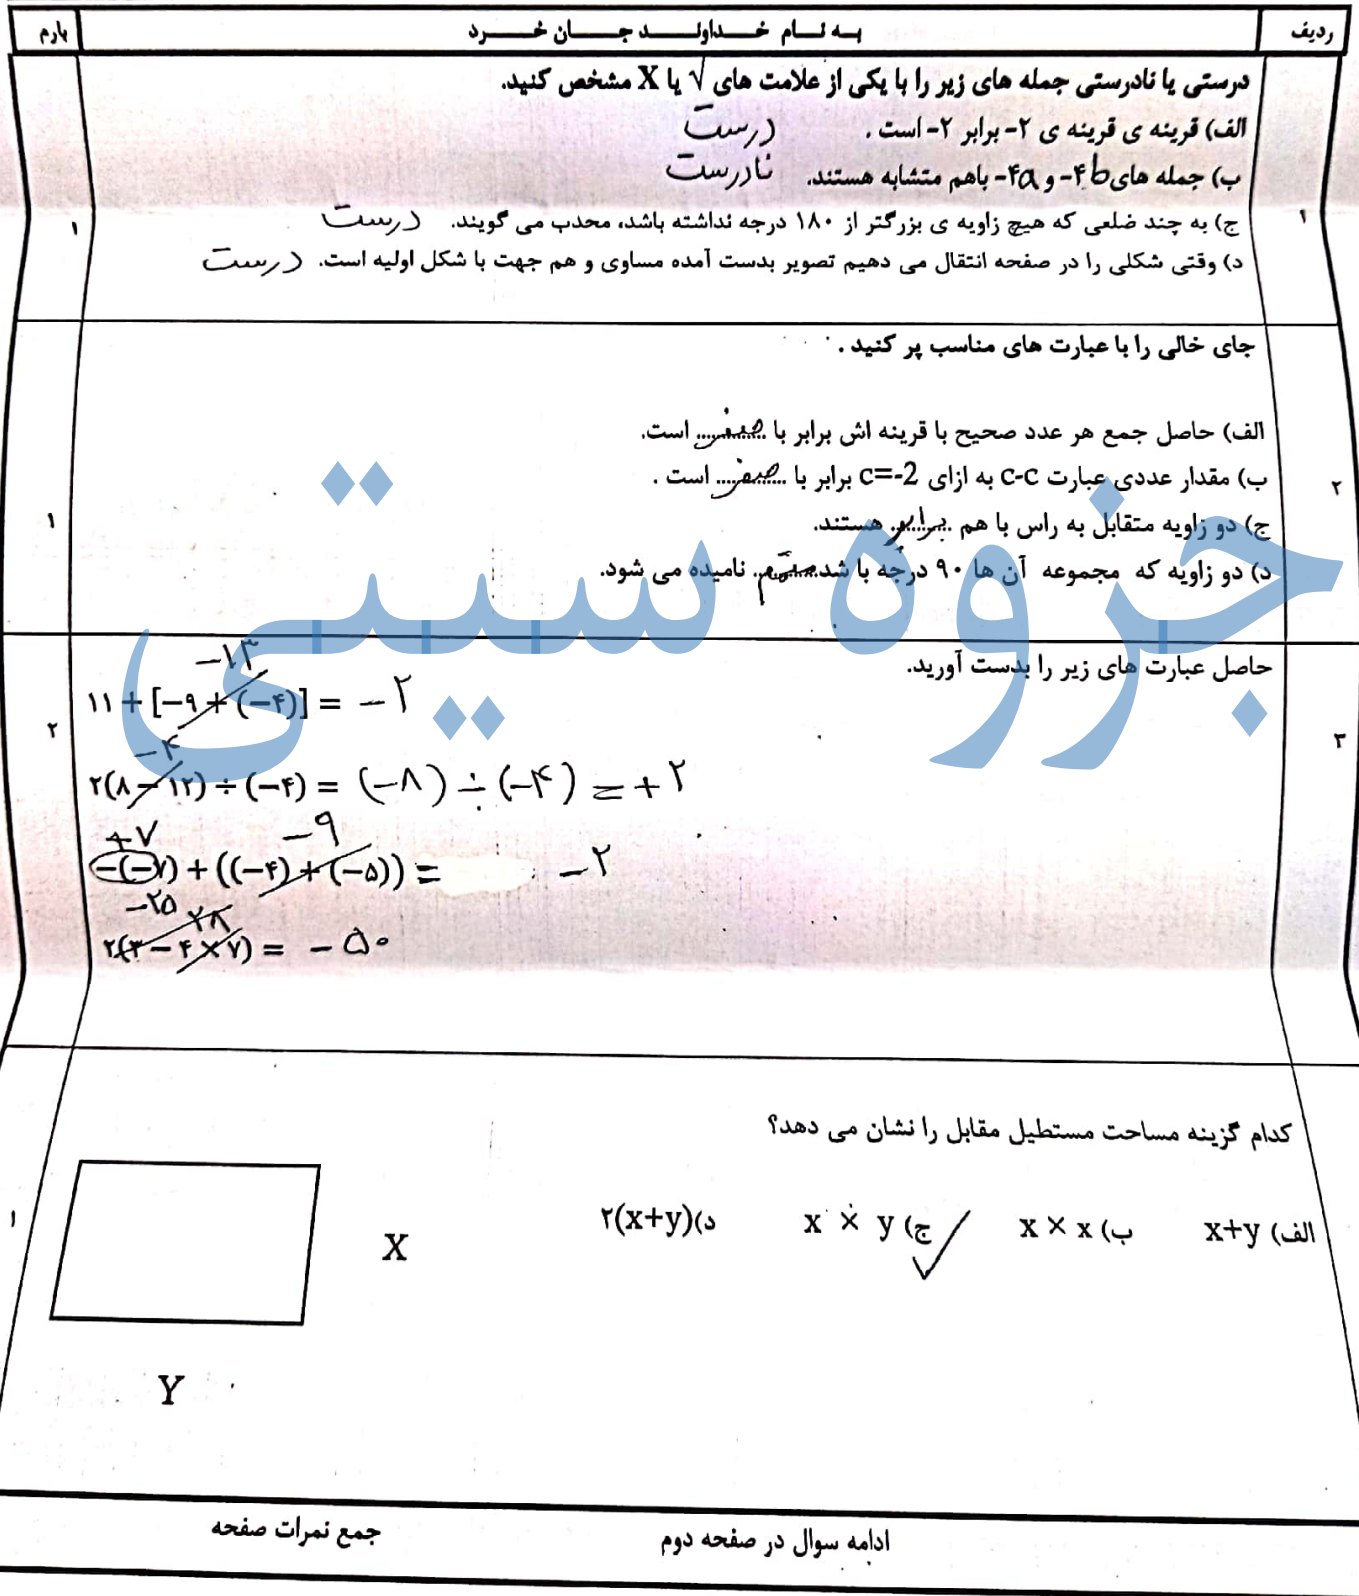 ردیف بـه نـام خـداونـد جـان خـرد بارم
درستی یا نادرستی جمله های زیر را با یکی از علامت های √ یا X مشخص کنید.
الف) قرینه ی قرینه ی ۲- برابر ۲- است . درست
ب) جمله های ۴b- و ۴a- باهم متشابه هستند. نادرست
۱ ج) به چند ضلعی که هیچ زاویه ی بزرگتر از ۱۸۰ درجه نداشته باشد، محدب می گویند. درست ۱
د) وقتی شکلی را در صفحه انتقال می دهیم تصویر بدست آمده مساوی و هم جهت با شکل اولیه است. درست
جای خالی را با عبارت های مناسب پر کنید .
الف) حاصل جمع هر عدد صحیح با قرینه اش برابر با صفر است.
۲ ب) مقدار عددی عبارت c-c به ازای c=-2 برابر با صفر است .
ج) دو زاویه متقابل به راس با هم برابر هستند. ۱
د) دو زاویه که مجموعه آن ها ۹۰ درجه با شد متمم نامیده می شود.
جزوه سیتی
حاصل عبارت های زیر را بدست آورید.
−۱۳
۱۱ + [−۹ + (−۴)] = −۲
۳ ۲
−۴
۲(۸ − ۱۲) ÷ (−۴) = (−۸) ÷ (−۴) = +۲
+۷ −۹
−(−۷) + ((−۴) + (−۵)) = −۲
−۲۵ ۲۸
۲(۳ − ۴ × ۷) = −۵۰
کدام گزینه مساحت مستطیل مقابل را نشان می دهد؟
الف) x+y ب) x × x ج) x × y ✓ د) ۲(x+y) ۱
X
Y
ادامه سوال در صفحه دوم جمع نمرات صفحه